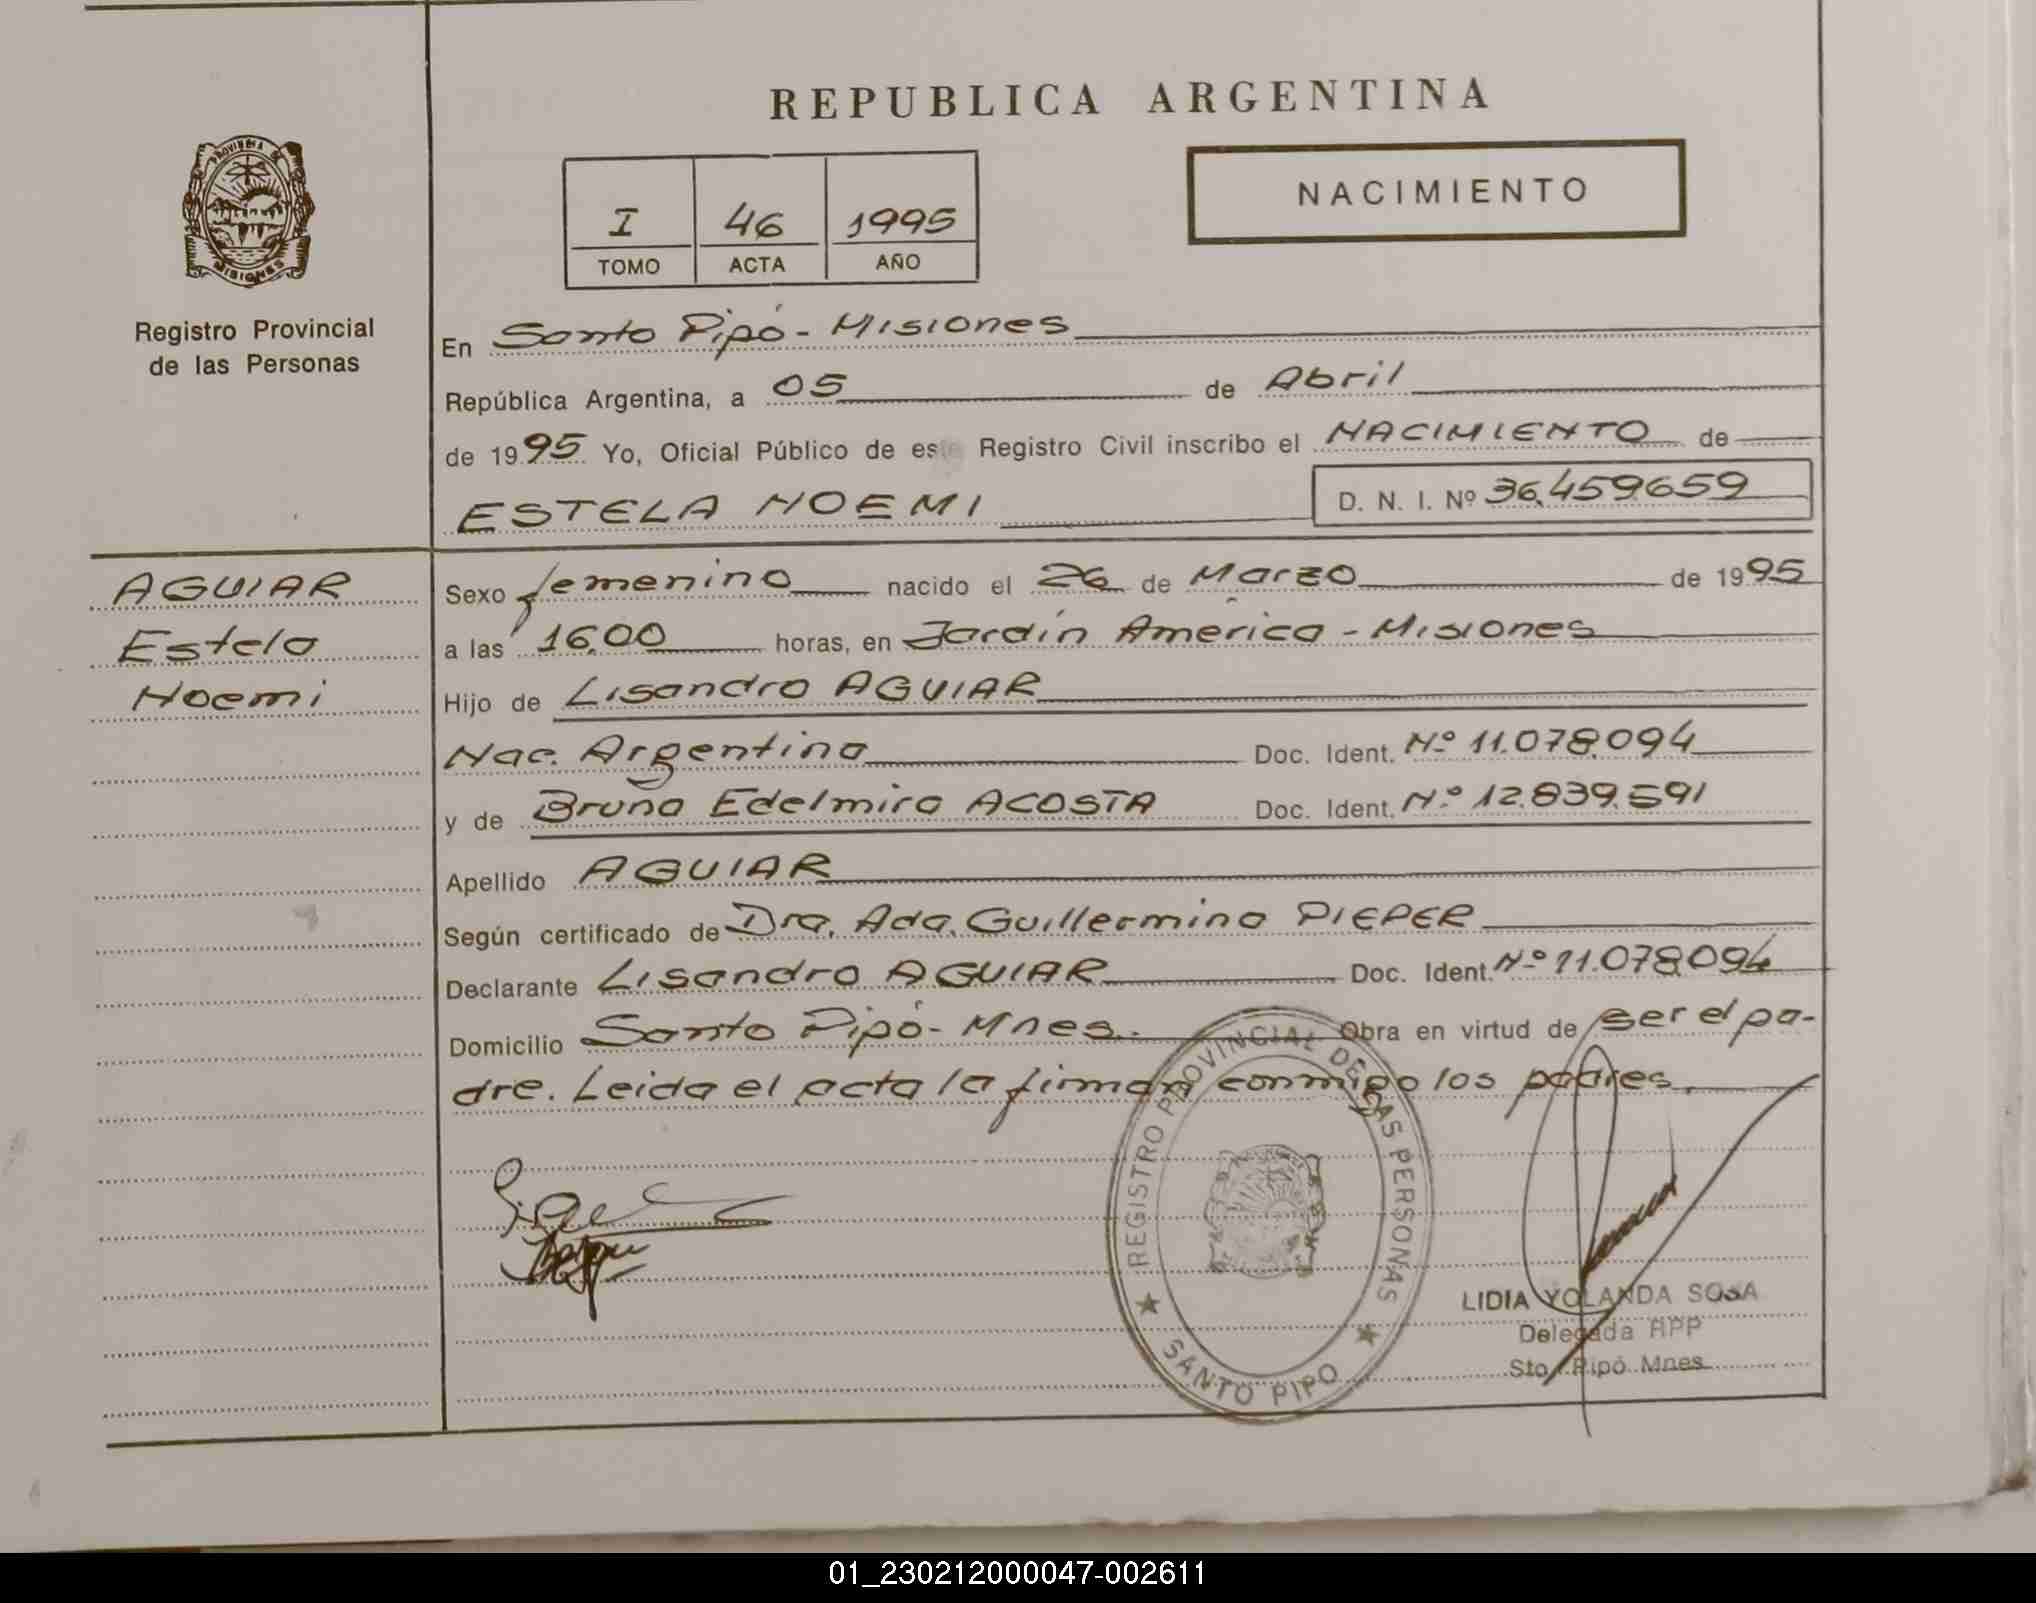 REPUBLICA ARGENTINA
PROVINCIA DE
MISIONES
Registro Provincial
de las Personas
I 46 1995
TOMO ACTA AÑO
NACIMIENTO
En Santo Pipó - Misiones
República Argentina, a 05 de Abril
de 1995 Yo, Oficial Público de este Registro Civil inscribo el NACIMIENTO de
ESTELA NOEMI D. N. I. Nº 36.459659
AGUIAR
Estela
Noemi
Sexo femenino nacido el 26 de Marzo de 1995
a las 16,00 horas, en Jardín América - Misiones
Hijo de Lisandro AGUIAR
Nac. Argentina Doc. Ident. Nº 11.078.094
y de Bruna Edelmira ACOSTA Doc. Ident. Nº 12.839.591
Apellido AGUIAR
Según certificado de Dra. Ada. Guillermina PIEPER
Declarante Lisandro AGUIAR Doc. Ident. Nº 11.078.094
Domicilio Santo Pipó - Mnes. Obra en virtud de ser el pa-
dre. Leida el acta la firman conmigo los padres.
REGISTRO PROVINCIAL DE LAS PERSONAS
SANTO PIPO
LIDIA YOLANDA SOSA
Delegada RPP
Sto. Pipó Mnes
01_230212000047-002611